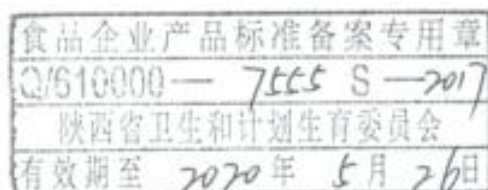 食品企业产品标准备案专用章
Q/610000— 7555 S —2017
陕西省卫生和计划生育委员会
有效期至 2020年 5月 26日